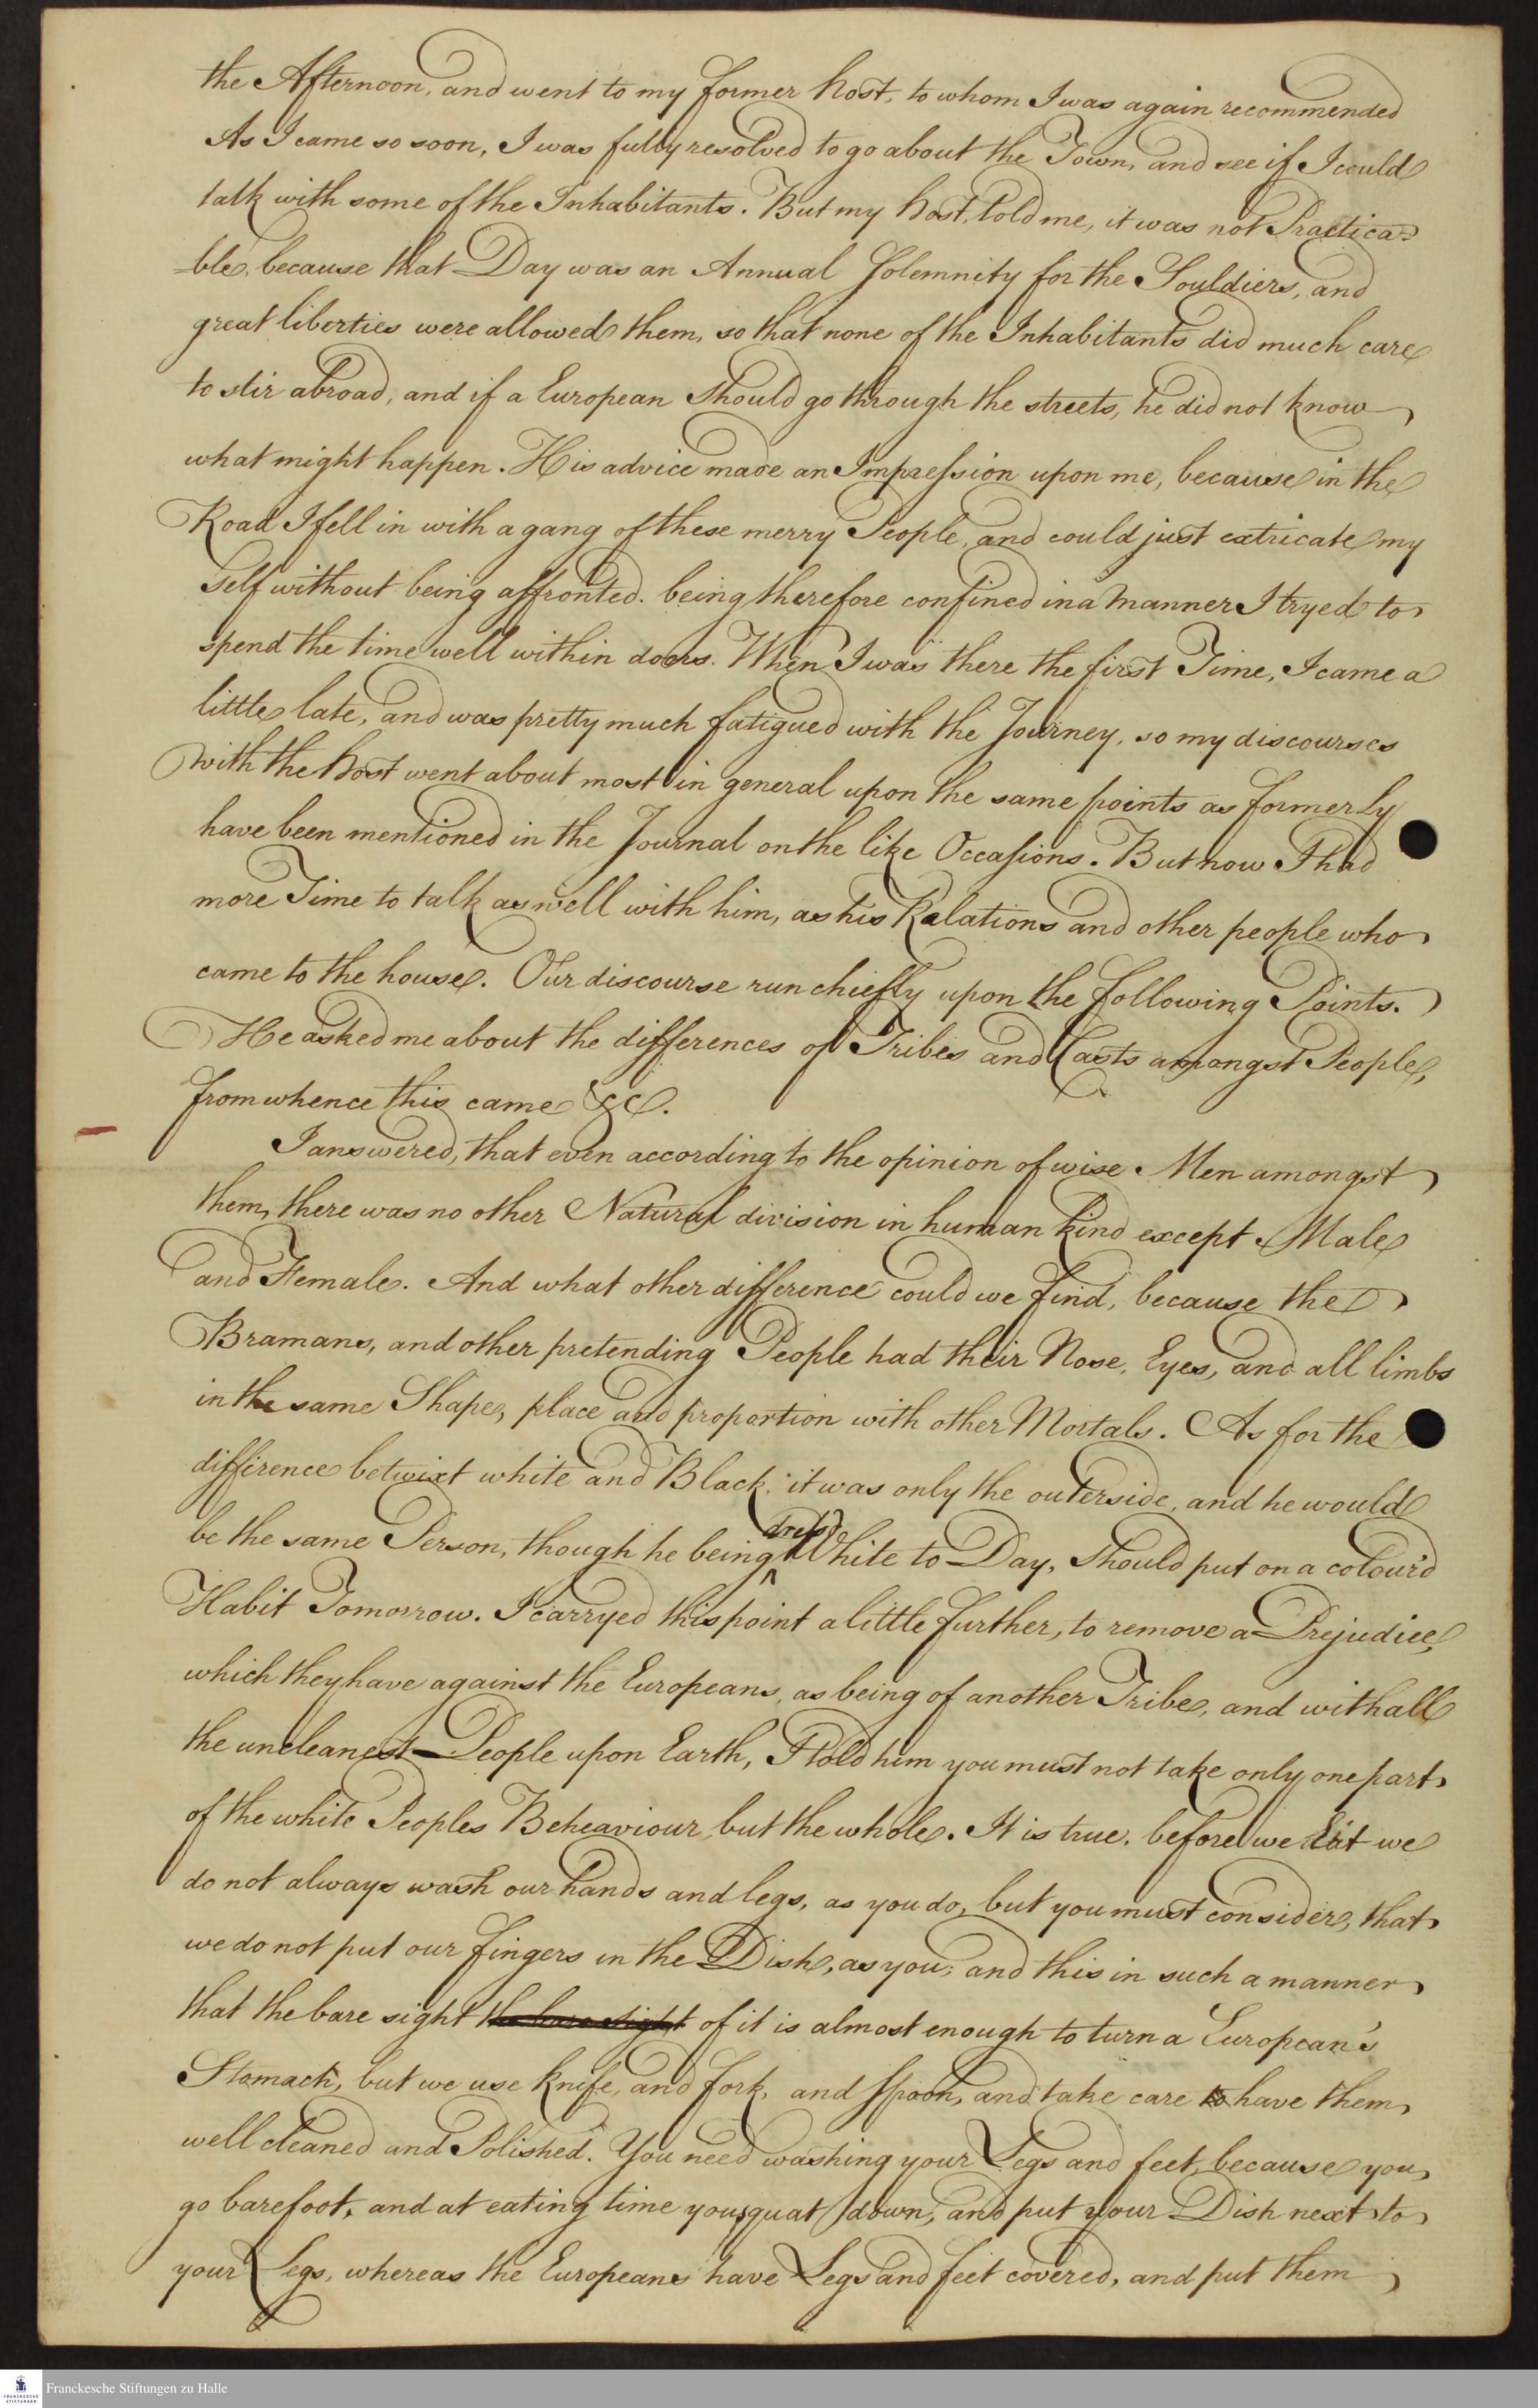 the Afternoon, and went to my former host, to whom I was again recommended
As I came so soon, I was fully resolved to go about the Town, and see if I could
talk with some of the Inhabitants. But my host, told me, it was not Practica=
=ble, because that Day was an Annual Solemnity for the Souldiers, and
great liberties were allowed them, so that none of the Inhabitants did much care
to stir abroad, and if a European should go through the streets, he did not know
what might happen. His advice made an Impression upon me, because in the
Road I fell in with a gang of these merry People, and could just extricate my
self without being affronted. being therefore confined in a manner I tryed to
spend the time well within doors. When I was there the first Time, I came a
little late, and was pretty much fatigued with the Journey, so my discourses
with the host went about most in general upon the same points as formerly
have been mentioned in the Journal on the like Occasions. But now I had
more Time to talk as well with him, as his Relations and other people who
came to the house. Our discourse run chiefly upon the following Points.
He asked me about the differences of Tribes and Casts amongst People,
from whence this came &c.
I answered, that even according to the opinion of wise Men amongst
them, there was no other Natural division in human kind except Male
and Female. And what other difference could we find, because the
Bramans, and other pretending People had their Nose, Eyes, and all limbs
in the same Shape, place and proportion with other Mortals. As for the
difference betwixt white and Black, it was only the outerside, and he would
be the same Person, though he being dress'd White to Day, should put on a colour'd
Habit Tomorrow. I carryed this point a little further, to remove a Prejudice,
which they have against the Europeans, as being of another Tribe, and withall
the uncleanest People upon Earth, I told him you must not take only one part
of the white Peoples Beheaviour, but the whole. It is true, before we Eat we
do not always wash our hands and legs, as you do, but you must consider, that
we do not put our fingers in the Dish, as you; and this in such a manner
that the bare sight the bare sight of it is almost enough to turn a European's
Stomach, but we use knife, and fork, and spoon, and take care to have them
well cleaned and Polished. You need washing your Legs and feet, because you
go barefoot, and at eating time you squat down, and put your Dish next to
your Legs, whereas the Europeans have Legs and feet covered, and put them
Franckesche Stiftungen zu Halle